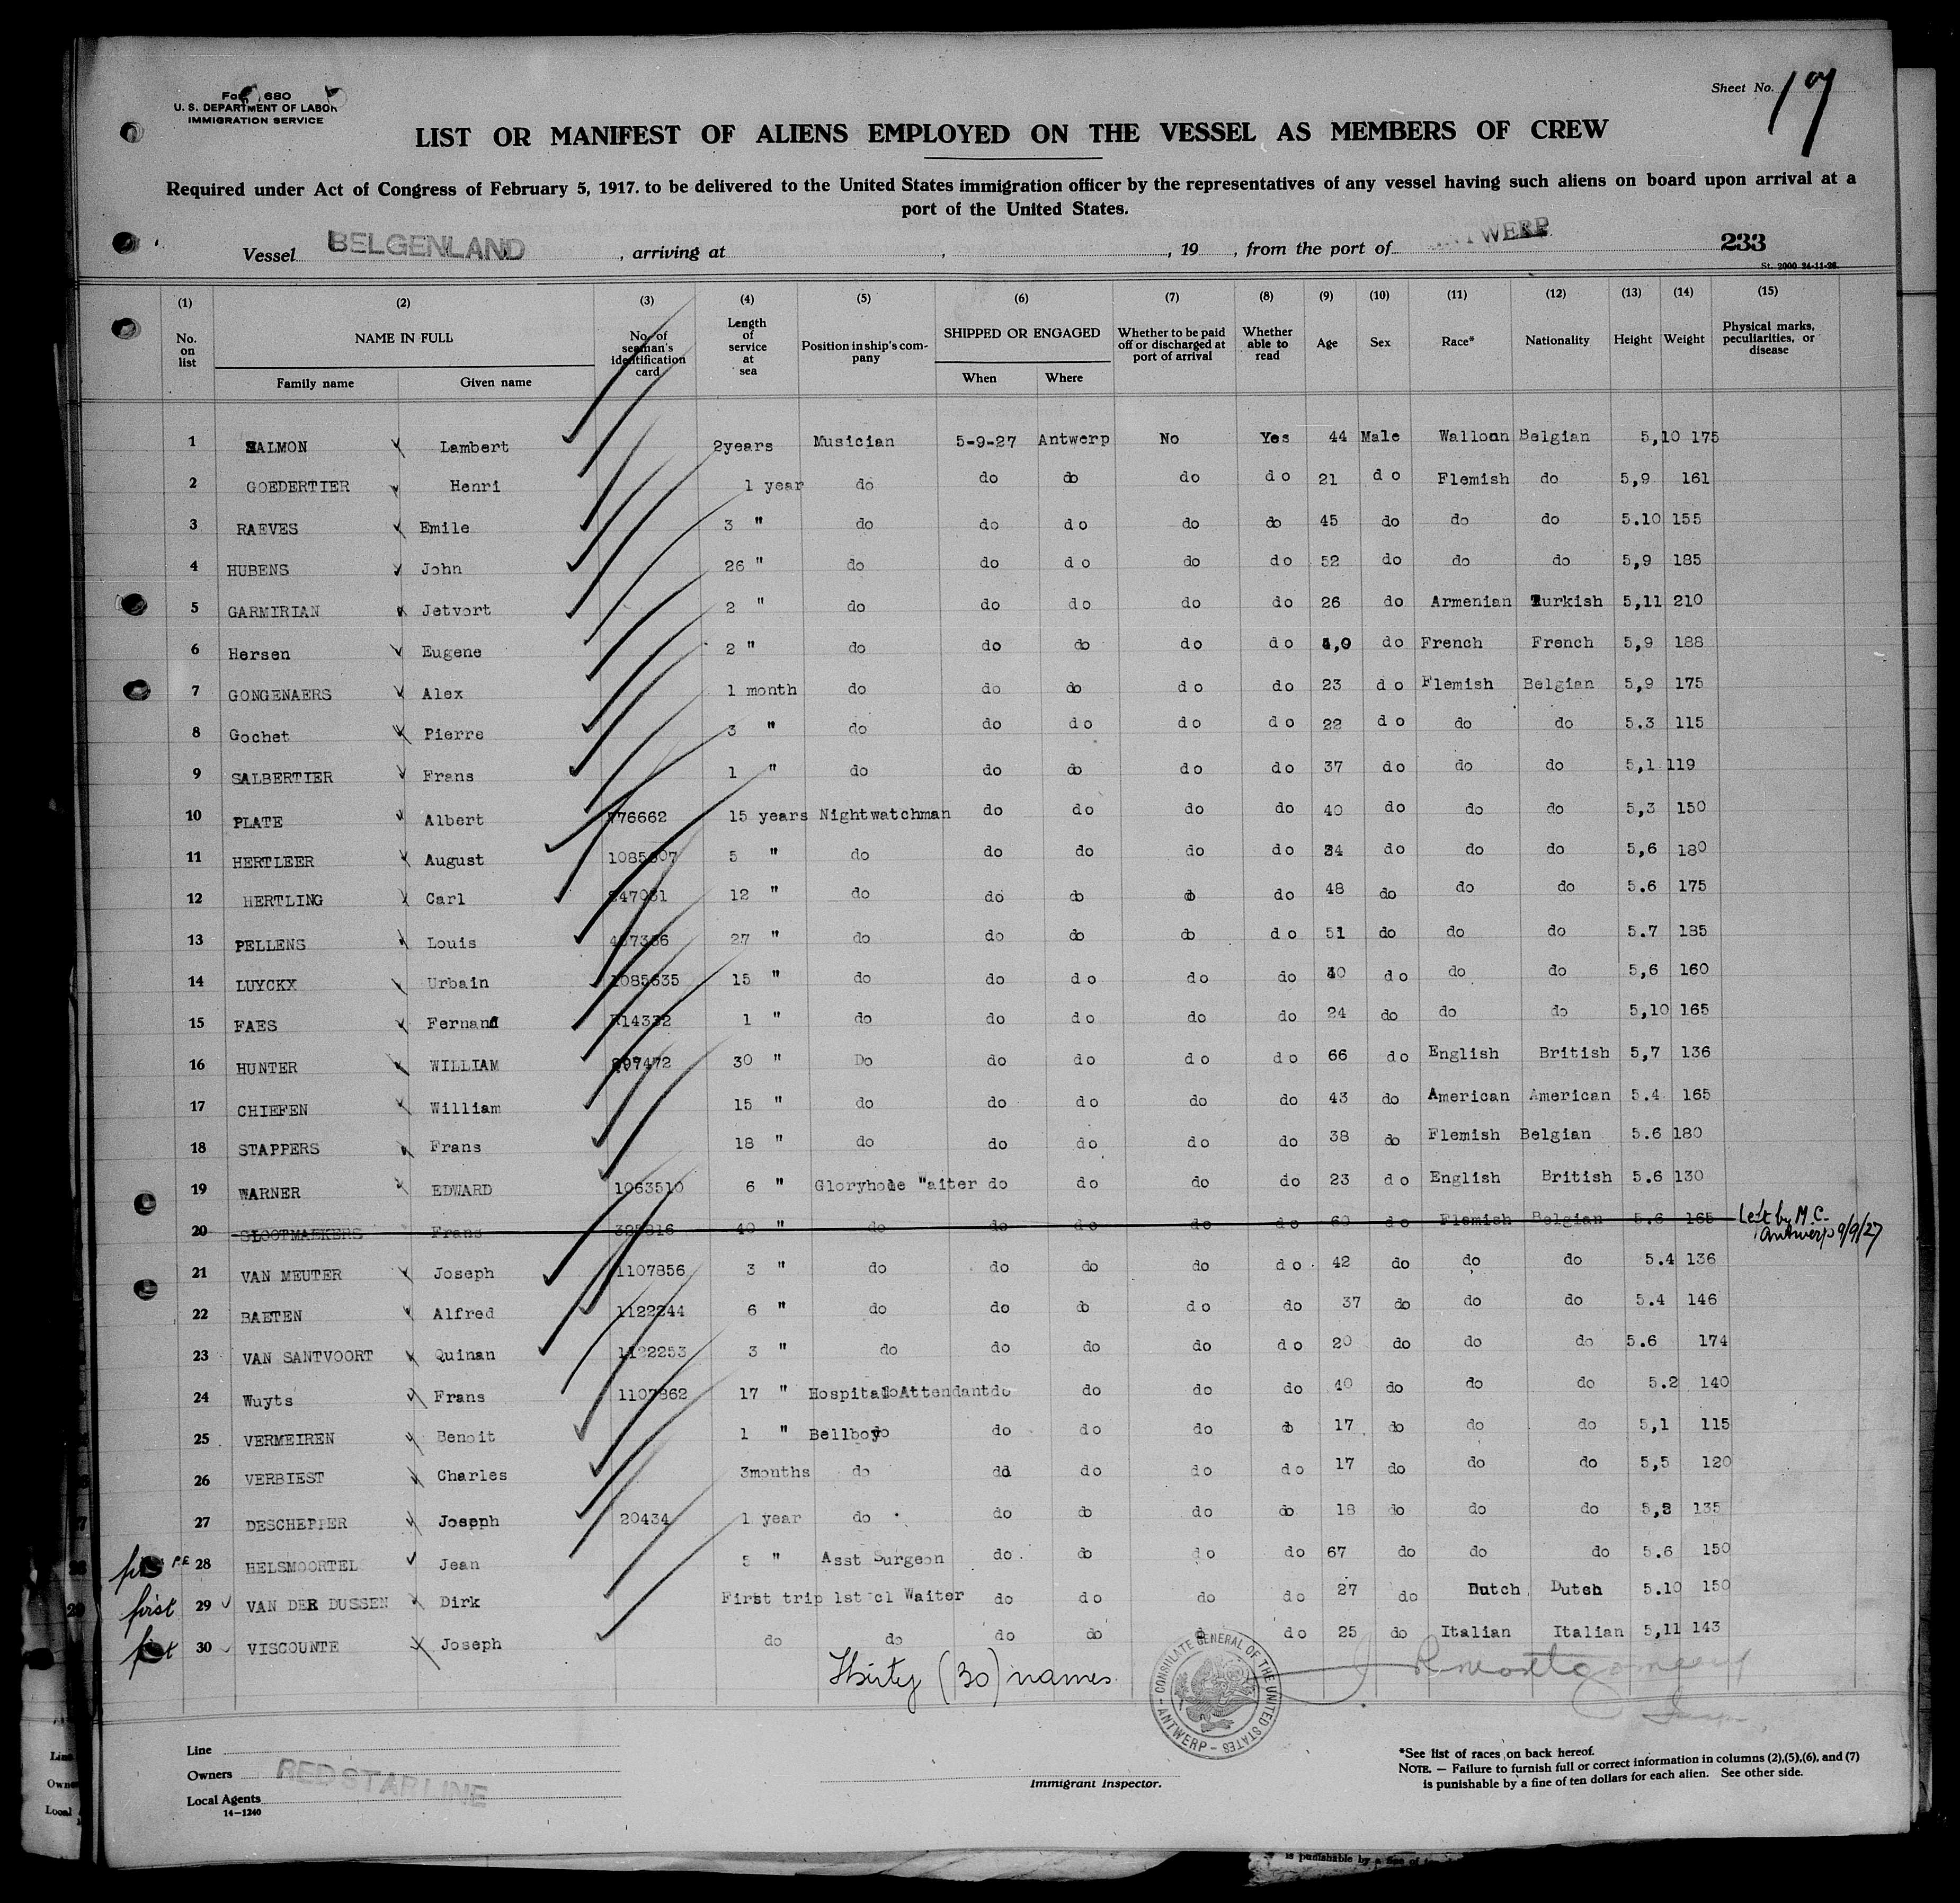 Form 680
U. S. DEPARTMENT OF LABOR
IMMIGRATION SERVICE
Sheet No.
LIST OR MANIFEST OF ALIENS EMPLOYED ON THE VESSEL AS MEMBERS OF CREW
Required under Act of Congress of February 5, 1917. to be delivered to the United States immigration officer by the representatives of any vessel having such aliens on board upon arrival at a
port of the United States.
Vessel BELGENLAND , arriving at , , 19 , from the port of ANTWERP 233
St. 2000 24-11-26.
(1) (2) (3) (4) (5) (6) (7) (8) (9) (10) (11) (12) (13) (14) (15)
No. on list NAME IN FULL Family name Given name No. of seaman's identification card Length of service at sea Position in ship's company SHIPPED OR ENGAGED When Where Whether to be paid off or discharged at port of arrival Whether able to read Age Sex Race* Nationality Height Weight Physical marks, peculiarities, or disease
1 SALMON Lambert 2years Musician 5-9-27 Antwerp No Yes 44 Male Walloon Belgian 5,10 175
2 GOEDERTIER Henri 1 year do do do do do 21 do Flemish do 5,9 161
3 RAEVES Emile 3 " do do do do do 45 do do do 5.10 155
4 HUBENS John 26 " do do do do do 52 do do do 5,9 185
5 GARMIRIAN Jetvort 2 " do do do do do 26 do Armenian Turkish 5,11 210
6 Hersen Eugene 2 " do do do do do do French French 5,9 188
7 GONGENAERS Alex 1 month do do do do do 23 do Flemish Belgian 5,9 175
8 Gochet Pierre 3 " do do do do do 22 do do do 5.3 115
9 SALBERTIER Frans 1 " do do do do do 37 do do do 5,1 119
10 PLATE Albert 776662 15 years Nightwatchman do do do do 40 do do do 5,3 150
11 HERTLEER August 1085607 5 " do do do do do 34 do do do 5,6 180
12 HERTLING Carl 12 " do do do do do 48 do do do 5.6 175
13 PELLENS Louis 27 " do do do do do 51 do do do 5.7 185
14 LUYCKX Urbain 1085635 15 " do do do do do do do do 5,6 160
15 FAES Fernand 1 " do do do do do 24 do do do 5,10 165
16 HUNTER WILLIAM 30 " Do do do do do 66 do English British 5,7 136
17 CHIEFEN William 15 " do do do do do 43 do American American 5.4 165
18 STAPPERS Frans 18 " do do do do do 38 do Flemish Belgian 5.6 180
19 WARNER EDWARD 1063510 6 " Gloryhole Waiter do do do do 23 do English British 5.6 130
20 SLOOTMAEKERS Frans 325816 40 " do do do do do 60 do Flemish Belgian 5.6 165 Left by M.C.
Antwerp 9/9/27
21 VAN MEUTER Joseph 1107856 3 " do do do do do 42 do do do 5.4 136
22 BAETEN Alfred 1122244 6 " do do do do do 37 do do do 5.4 146
23 VAN SANTVOORT Quinan 1122253 3 " do do do do do 20 do do do 5.6 174
24 Wuyts Frans 1107862 17 " Hospital Attendant do do do do 40 do do do 5.2 140
25 VERMEIREN Benoit 1 " Bellboy do do do do 17 do do do 5,1 115
26 VERBIEST Charles 3months do dd do do do 17 do do do 5,5 120
27 DESCHEPPER Joseph 20434 1 year do do do do do 18 do do do 5,3 135
P.E 28 HELSMOORTEL Jean 5 " Asst Surgeon do do do do 67 do do do 5.6 150
first 29 VAN DER DUSSEN Dirk First trip 1st cl Waiter do do do do 27 do Dutch Dutch 5.10 150
first 30 VISCOUNTE Joseph do do do do do do 25 do Italian Italian 5,11 143
Thirty (30) names
CONSULATE GENERAL OF THE UNITED STATES - ANTWERP -
Line
Owners RED STAR LINE
Local Agents
14-1240
Immigrant Inspector.
*See list of races on back hereof.
NOTE. — Failure to furnish full or correct information in columns (2),(5),(6), and (7)
is punishable by a fine of ten dollars for each alien. See other side.